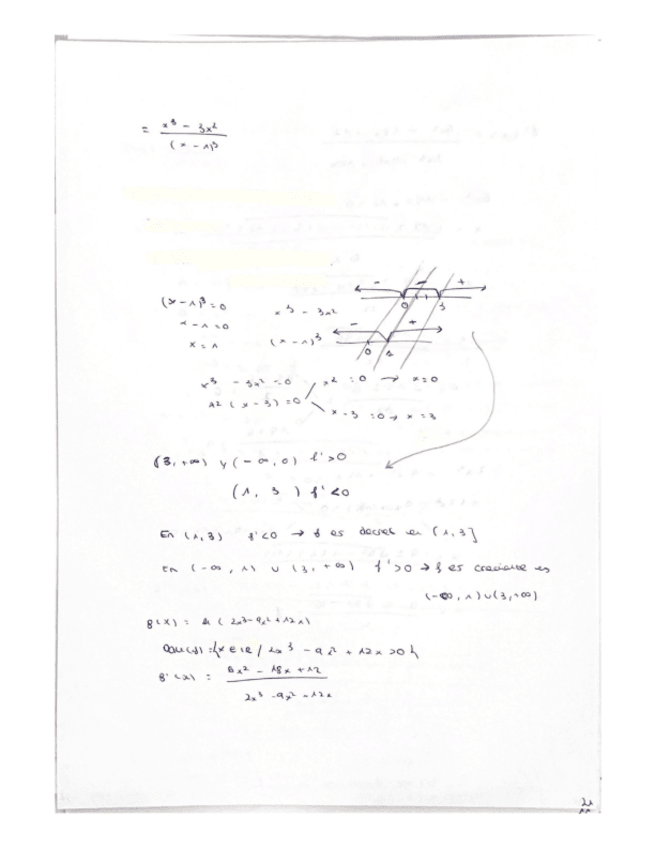 = x³ - 3x² / (x - 1)³
- - +
0 3
(x - 1)³ = 0 x³ - 3x²
- +
x - 1 = 0
x = 1 (x - 1)³
0 1
x³ - 3x² = 0 x² = 0 → x = 0
x² (x - 3) = 0
x - 3 = 0 → x = 3
(3, +∞) y (-∞, 0) f' > 0
(1, 3) f' < 0
En (1, 3) f' < 0 → f es decrec en [1, 3]
En (-∞, 1) ∪ (3, +∞) f' > 0 → f es creciente en
(-∞, 1) ∪ (3, +∞)
g(x) = ln (2x³ - 9x² + 12x)
Dom(g) = {x ∈ ℝ / 2x³ - 9x² + 12x > 0}
g'(x) = 6x² - 18x + 12 / 2x³ - 9x² - 12x